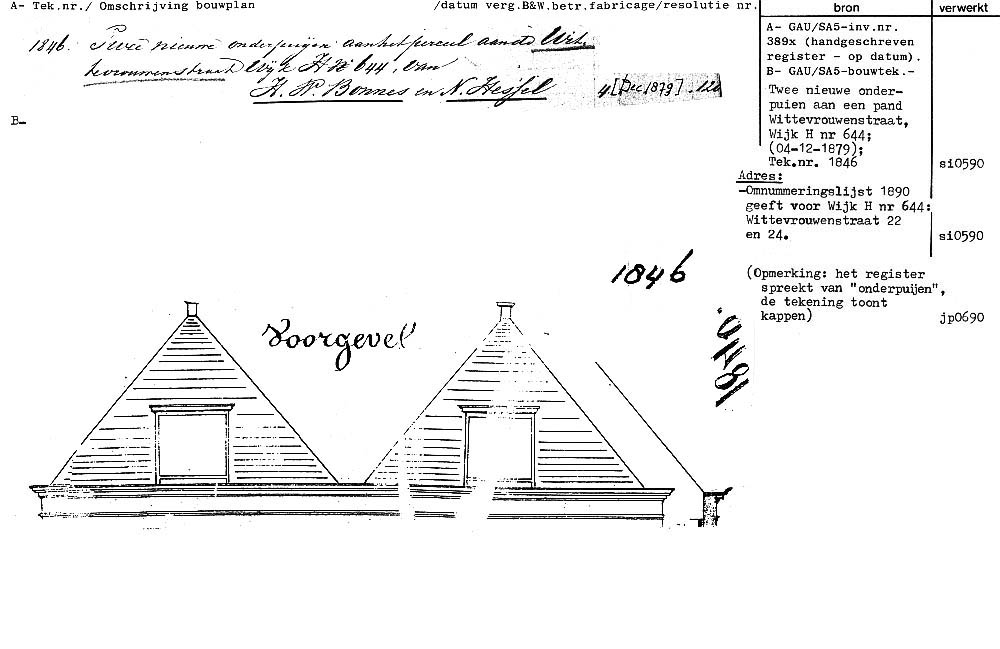 A- Tek.nr./ Omschrijving bouwplan /datum verg.B&W.betr.fabricage/resolutie nr.
1846. Twee nieuwe onderpuijen aan het perceel aan de Wit.
tevrouwenstraat Wijk H No 644, van
H. P. Bonnes en N. Hessel
4 [Dec 1879]. 120
B-
bron
verwerkt
A- GAU/SA5-inv.nr.
389x (handgeschreven
register - op datum).
B- GAU/SA5-bouwtek.-
Twee nieuwe onder-
puien aan een pand
Wittevrouwenstraat,
Wijk H nr 644;
(04-12-1879);
Tek.nr. 1846
si0590
Adres:
-Omnummeringslijst 1890
geeft voor Wijk H nr 644:
Wittevrouwenstraat 22
en 24.
si0590
(Opmerking: het register
spreekt van "onderpuijen",
de tekening toont
kappen)
jp0690
1846
Voorgevel